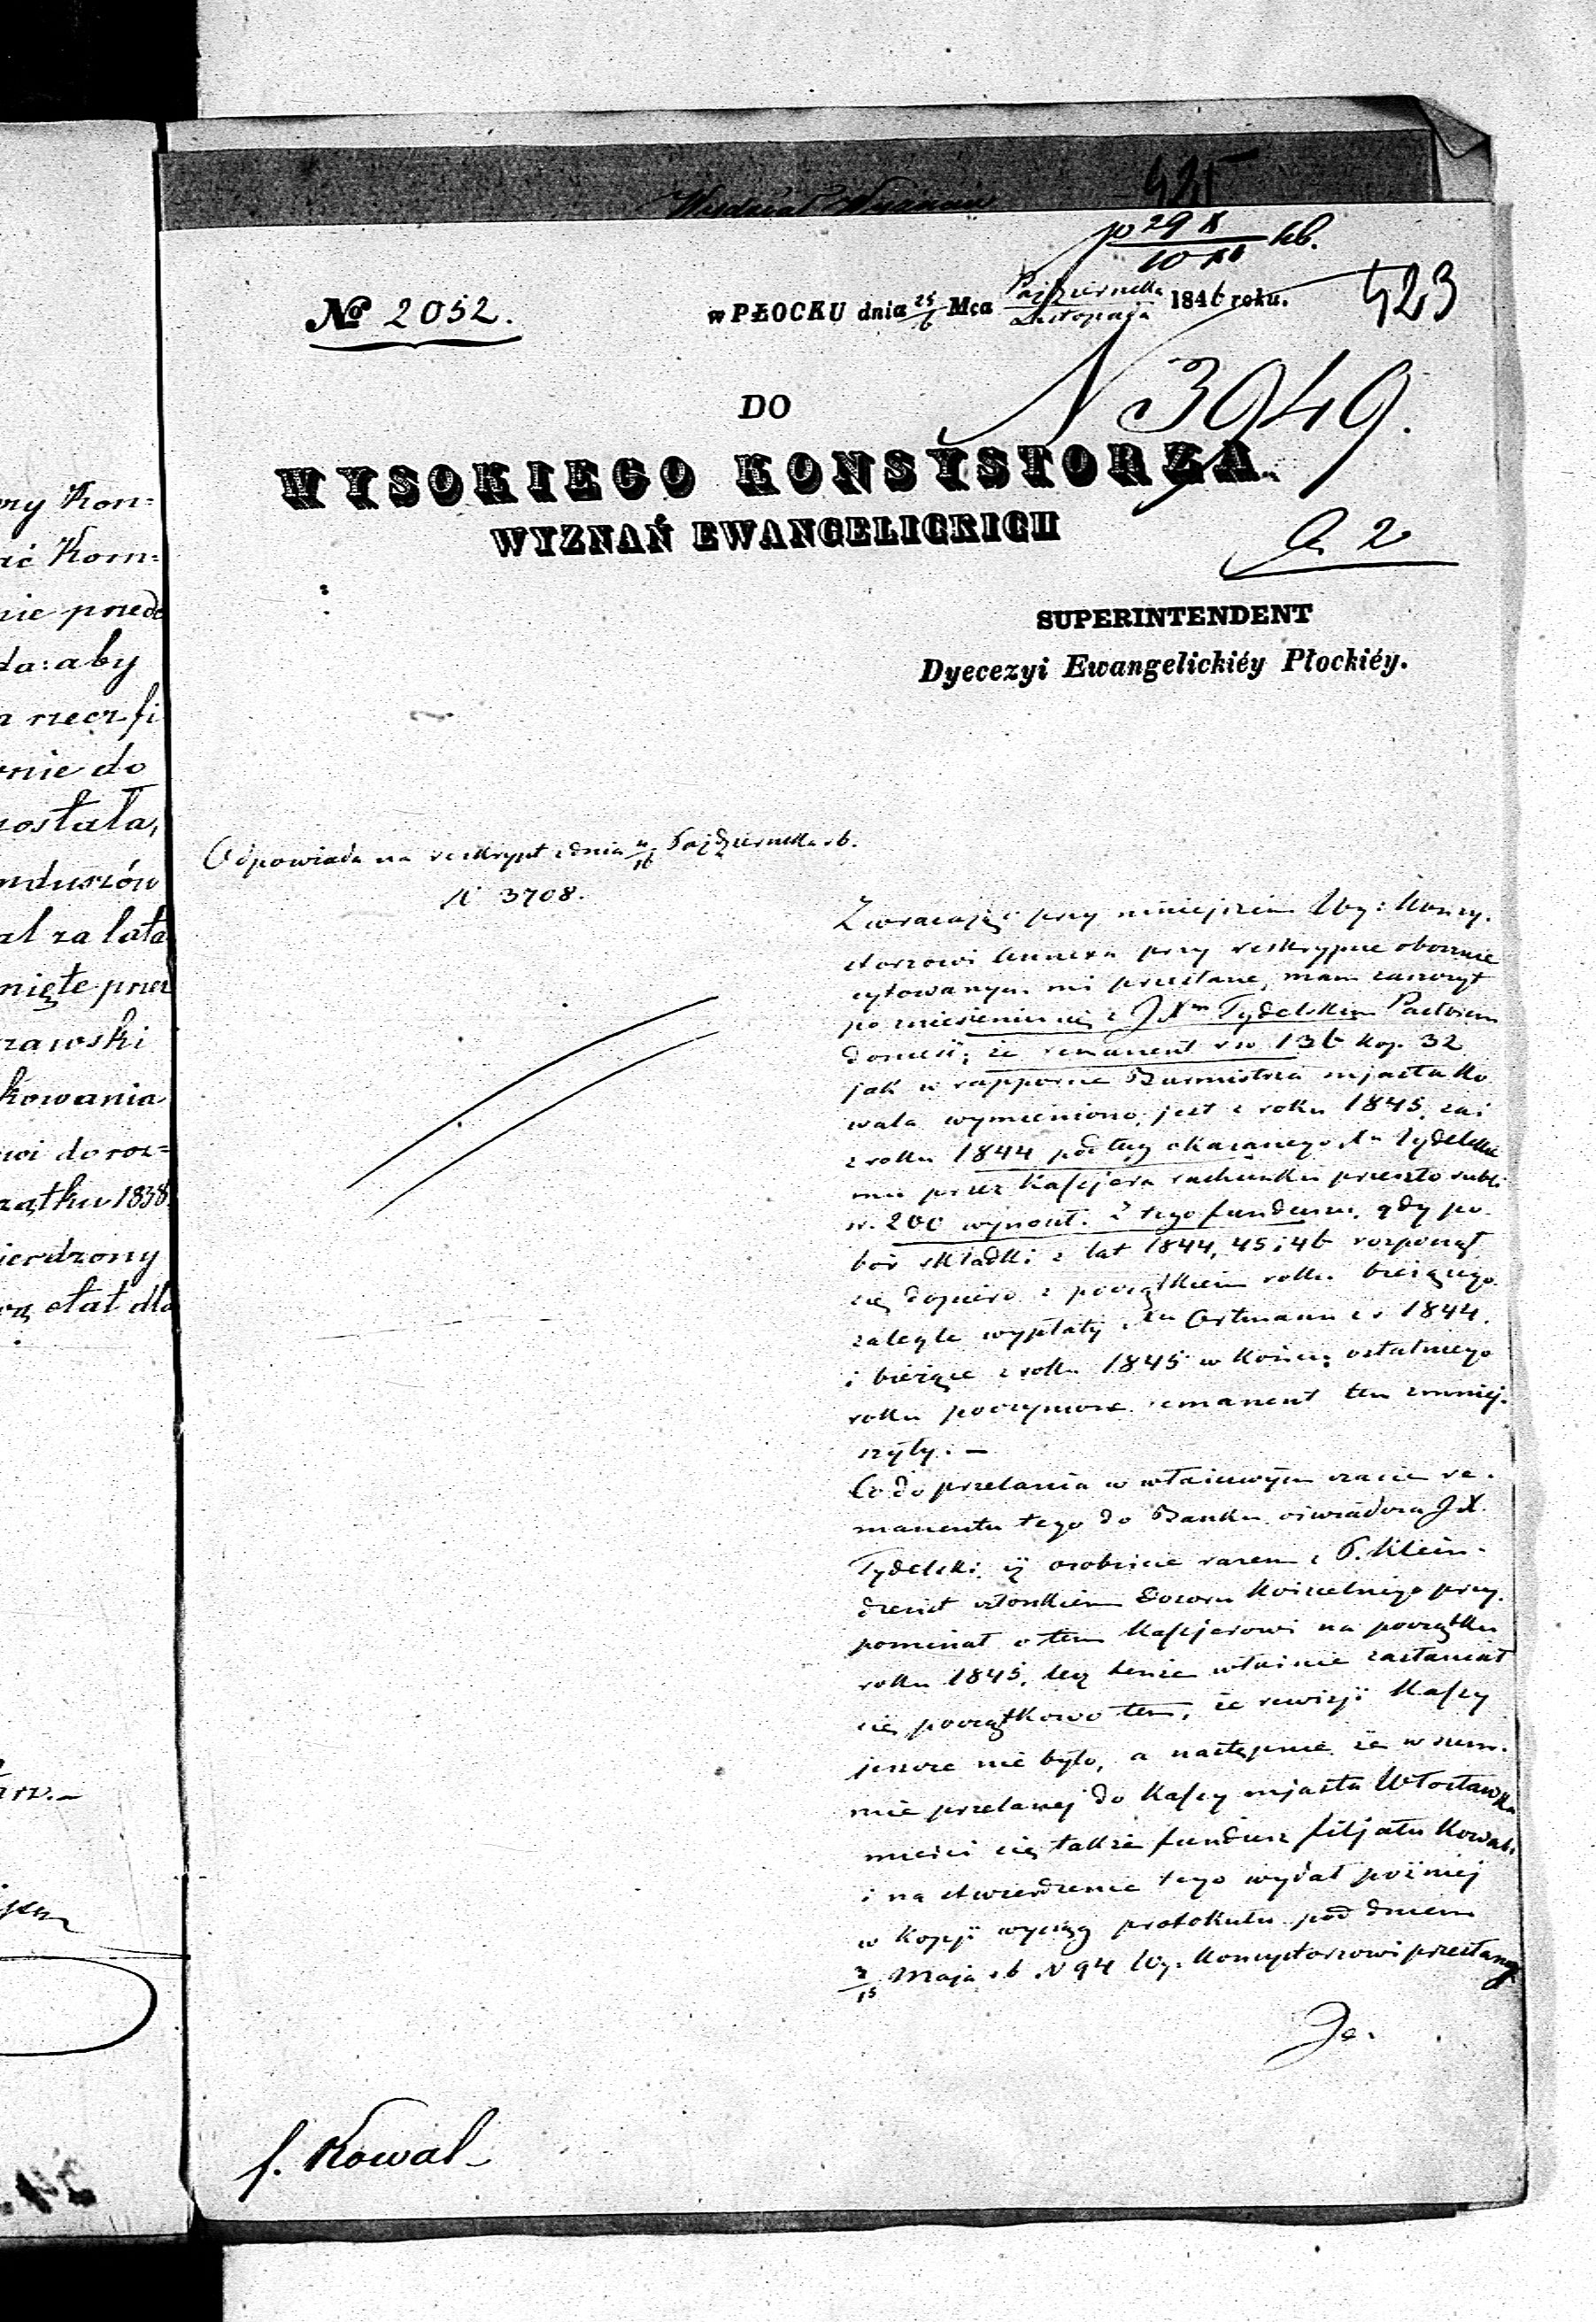 ny Kon=
ać Kom=
nie przed
da: aby
a rzecz fi
nie do
została,
nduszów
al za lata
nięte przez
zawski
kowania
wi do roz=
zątku 1838
ierdzony
etat dla
425
p 29 X hb.
10 XI
423
No 2052.
w PŁOCKU dnia 25/6 Mca Października/Listopada 1846 roku.
N 3949.
DO
WYSOKIEGO KONSYSTORZA
WYZNAŃ EWANGELICKICH
2
SUPERINTENDENT
Dyecezyi Ewangelickiéy Płockiéy.
Odpowiada na reskrypt z dnia 4/16 Października r b.
N 3708.
Zwracając przy niniejszem Wy: Konsy-
storzowi annexa przy reskrypcie obocznie
cytowanym mi przesłane, mam zaszczyt
po zniesieniu się z JXm Tydelskim Pastorem
donieść; że remanent rsr. 136 kop. 32
jak w rapporcie Burmistrza mjasta Ko
wala wymieniono, jest z roku 1845, zaś
z roku 1844 podług okazanego Xu Tydelskie
mu przez Kassjera rachunku przeszło rubli
sr. 200 wynosił. Z tego funduszu, gdy po-
bór składki z lat 1844, 45 i 46 rozpoczął
się dopiero z początkiem roku bieżącego
zaległe wypłaty Xu Ortmann z r 1844.
i bieżące z roku 1845 w końcu ostatniego
roku poczynione remanent ten zmniej-
szyły. —
Co do przelania w właściwym czasie re-
manentu tego do Banku oświadcza JX
Tydelski, iż osobiście razem z P. Klein-
dzienst członkiem Dozoru Kościelnego przy-
pominał o tem Kassjerowi na początku
roku 1845, lecz tenże właśnie zastaniał
się początkowo tem, że rewizji Kassy
jeszcze nie było, a następnie że w sum-
mie przelanej do Kassy mjasta Włocławka
mieści się także fundusz filjału Kowal.
i na stwierdzenie tego wydał później
w kopji wyciąg protokułu pod dniem
3/15 Maja r b. N 94 Wy. Konsystorzowi przesłany
Je.
f. Kowal